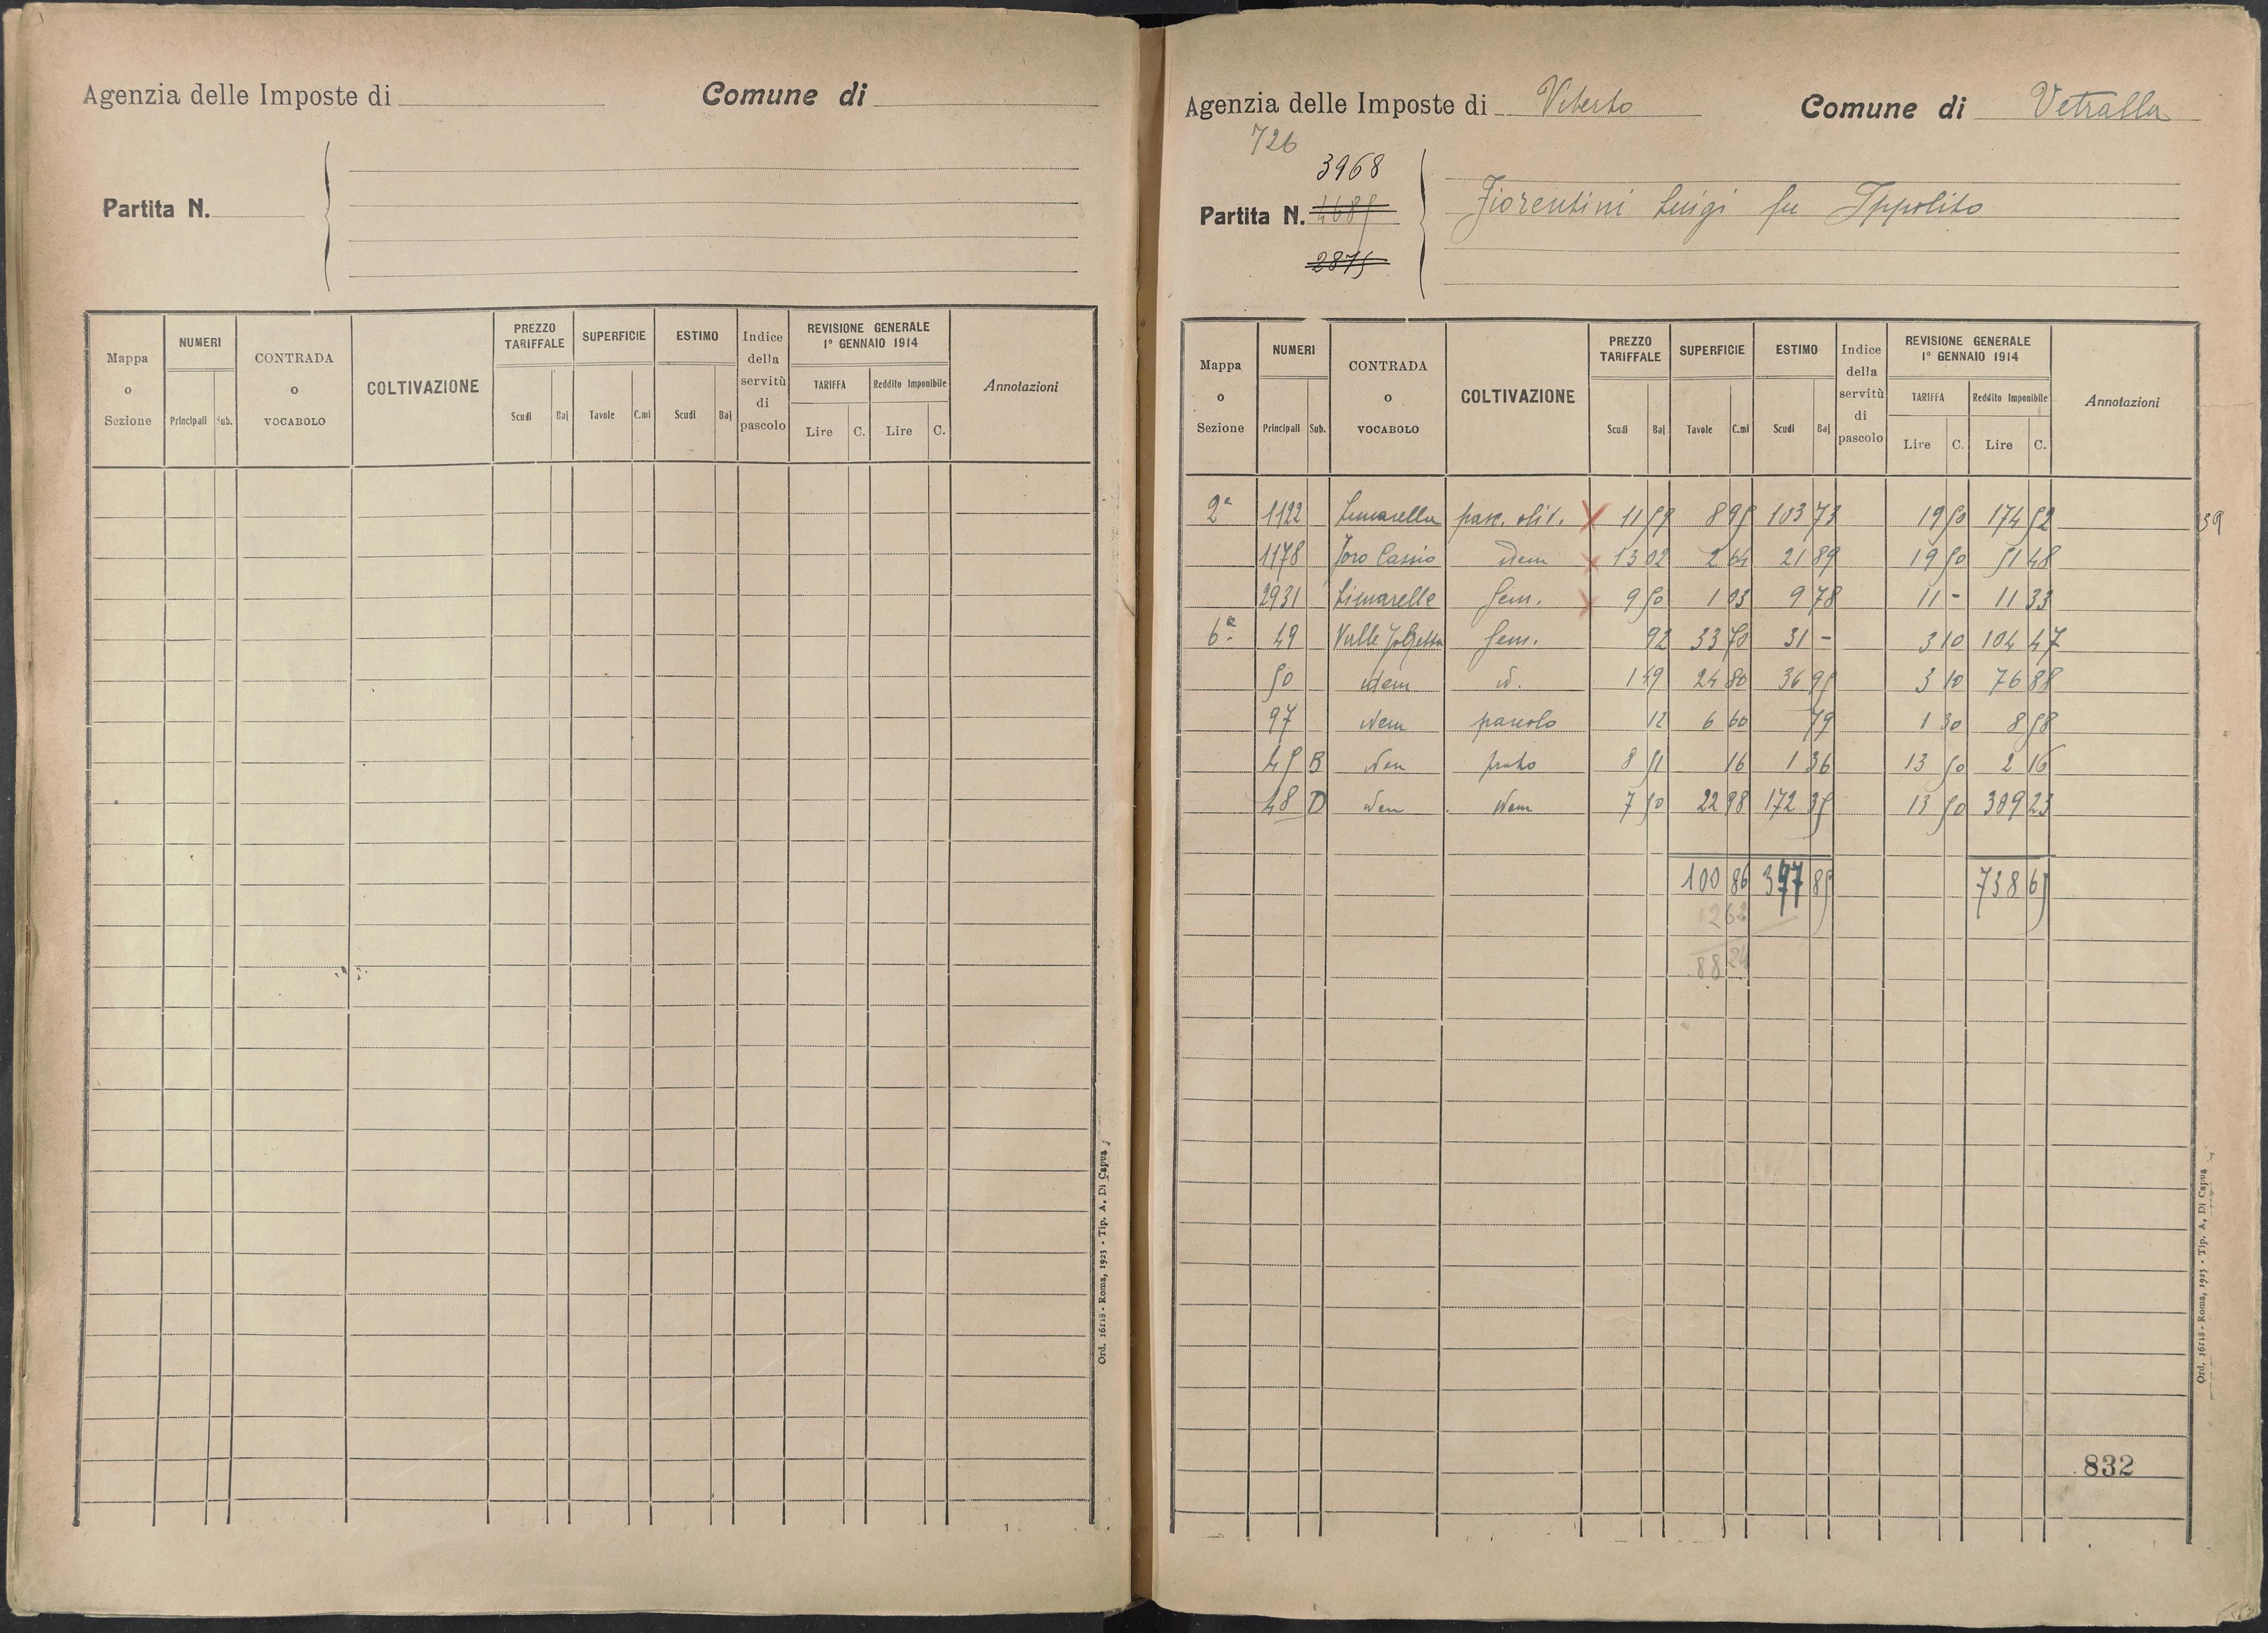 Agenzia delle Imposte di
Comune di
Partita N.
Mappa o Sezione
NUMERI
Principali Sub.
CONTRADA o VOCABOLO
COLTIVAZIONE
PREZZO TARIFFALE
Scudi Baj
SUPERFICIE
Tavole C.mi
ESTIMO
Scudi Baj
Indice della servitù di pascolo
REVISIONE GENERALE
1° GENNAIO 1914
TARIFFA Reddito Imponibile
Lire C. Lire C.
Annotazioni
Ord. 16118 - Roma, 1923 - Tip. A. Di Capua
1
Agenzia delle Imposte di Viterbo
Comune di Vetralla
726
3968
Partita N. 4685
2875
Fiorentini Luigi fu Ippolito
Mappa o Sezione
NUMERI
Principali Sub.
CONTRADA o VOCABOLO
COLTIVAZIONE
PREZZO TARIFFALE
Scudi Baj
SUPERFICIE
Tavole C.mi
ESTIMO
Scudi Baj
Indice della servitù di pascolo
REVISIONE GENERALE
1° GENNAIO 1914
TARIFFA Reddito Imponibile
Lire C. Lire C.
Annotazioni
2ª 1122 pasc. oliv. X 11 59 8 95 103 73 19 50 174 52 39
1178 Foro Cassio idem X 13 02 2 64 21 89 19 50 51 48
2931 Limarelle Sem. X 9 50 1 03 9 78 11 - 11 33
6ª 49 Valle Sem. 92 33 70 31 - 3 10 104 47
50 idem id. 1 49 24 80 36 95 3 10 76 88
97 idem pascolo 12 6 60 79 1 30 8 58
45 B idem prato 8 51 16 1 36 13 50 2 16
48 D idem idem 7 50 22 98 172 35 13 50 309 23
100 86 377 85 738 65
12 62
88 24
832
Ord. 16118 - Roma, 1923 - Tip. A. Di Capua